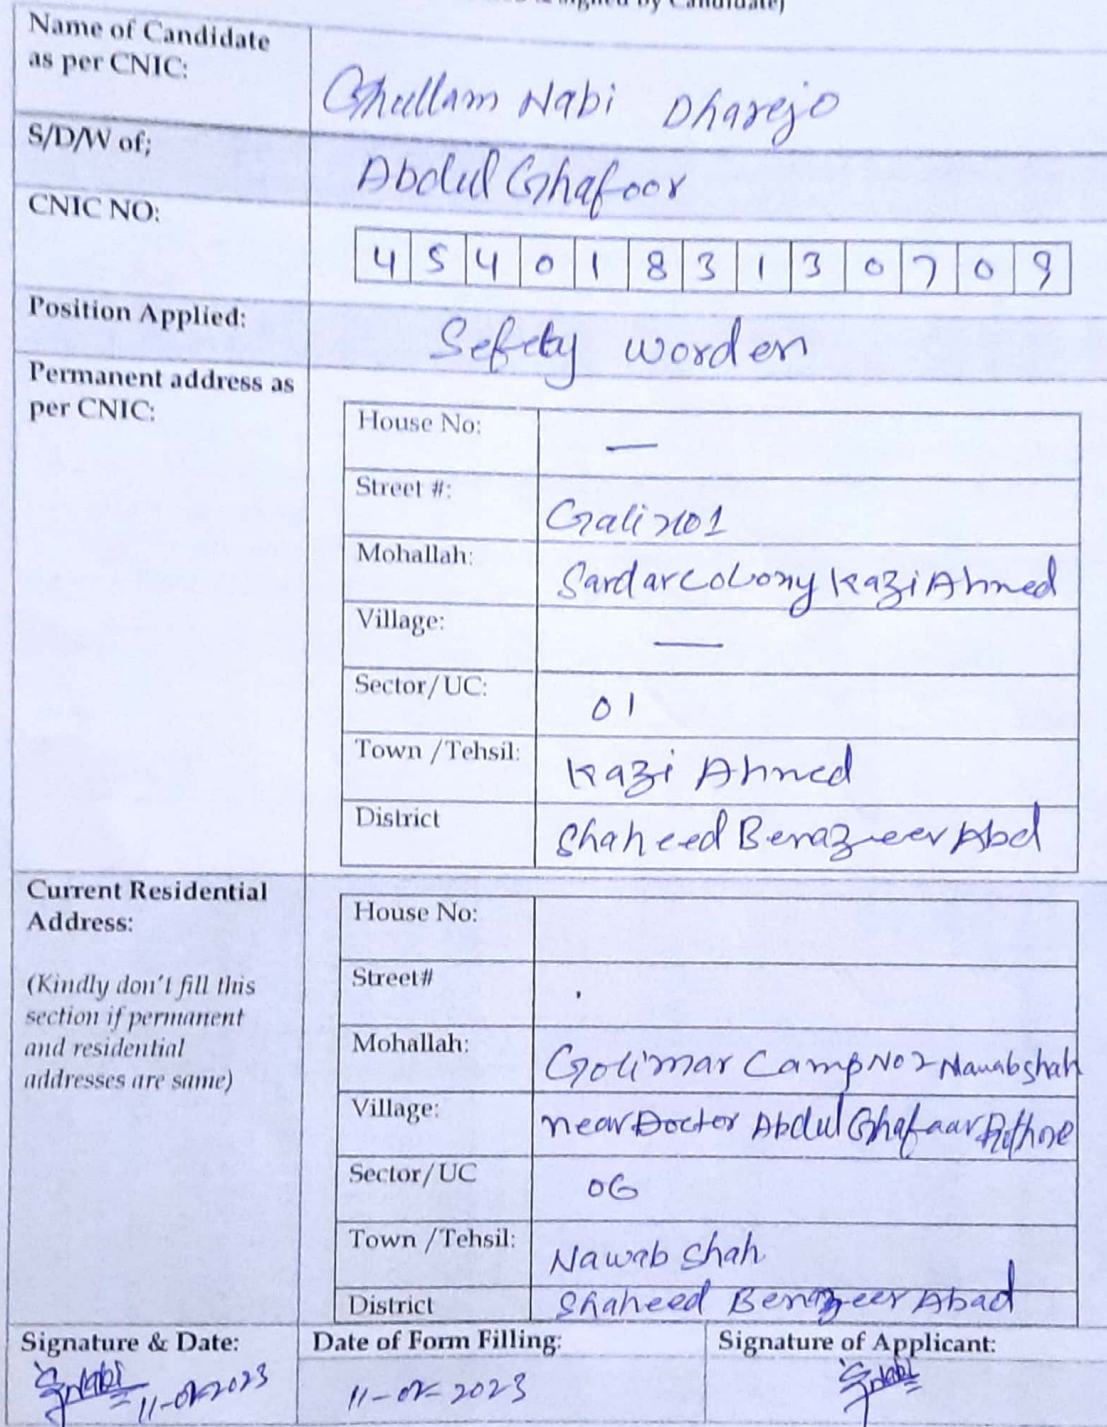 signed by Candidate)
Name of Candidate
as per CNIC:
Ghullam Nabi Dharejo
S/D/W of;
Abdul Ghafoor
CNIC NO:
4 5 4 0 1 8 3 1 3 0 7 0 9
Position Applied:
Sefety worden
Permanent address as
per CNIC:
House No: —
Street #: Gali no1
Mohallah: Sardar colony Kazi Ahmed
Village: —
Sector/UC: 01
Town /Tehsil: Kazi Ahmed
District Shaheed Benazeer Abd
Current Residential
Address:
(Kindly don't fill this
section if permanent
and residential
addresses are same)
House No:
Street#
Mohallah: Golimar Camp No 2 Nawabshah
Village: near Doctor Abdul Ghafaar
Sector/UC 06
Town /Tehsil: Nawab shah
District Shaheed Benazeer Abad
Signature & Date:
Date of Form Filling:
Signature of Applicant: